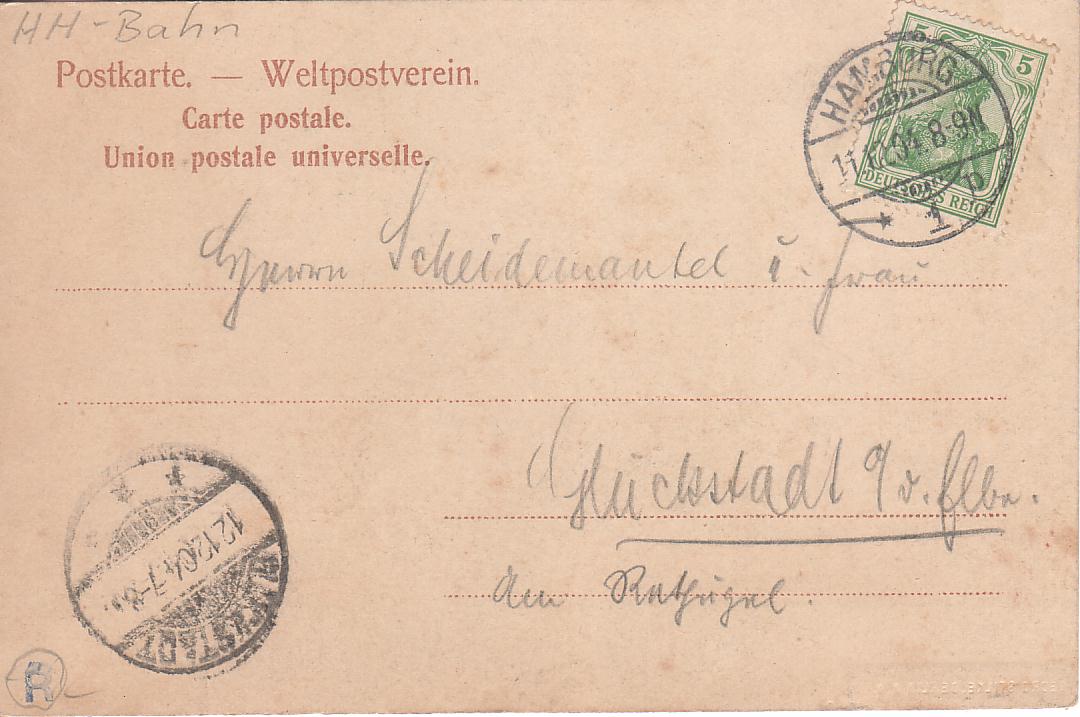 HH-Bahn
Postkarte. — Weltpostverein.
Carte postale.
Union postale universelle.
5 5
DEUTSCHES REICH
HAMBURG
11.12.04. 8-9N
* 1 p
Herrn Scheidemantel u. Frau
Glückstadt a/d. Elbe.
Am
GLÜCKSTADT
12.12.04. 7-8V.
R